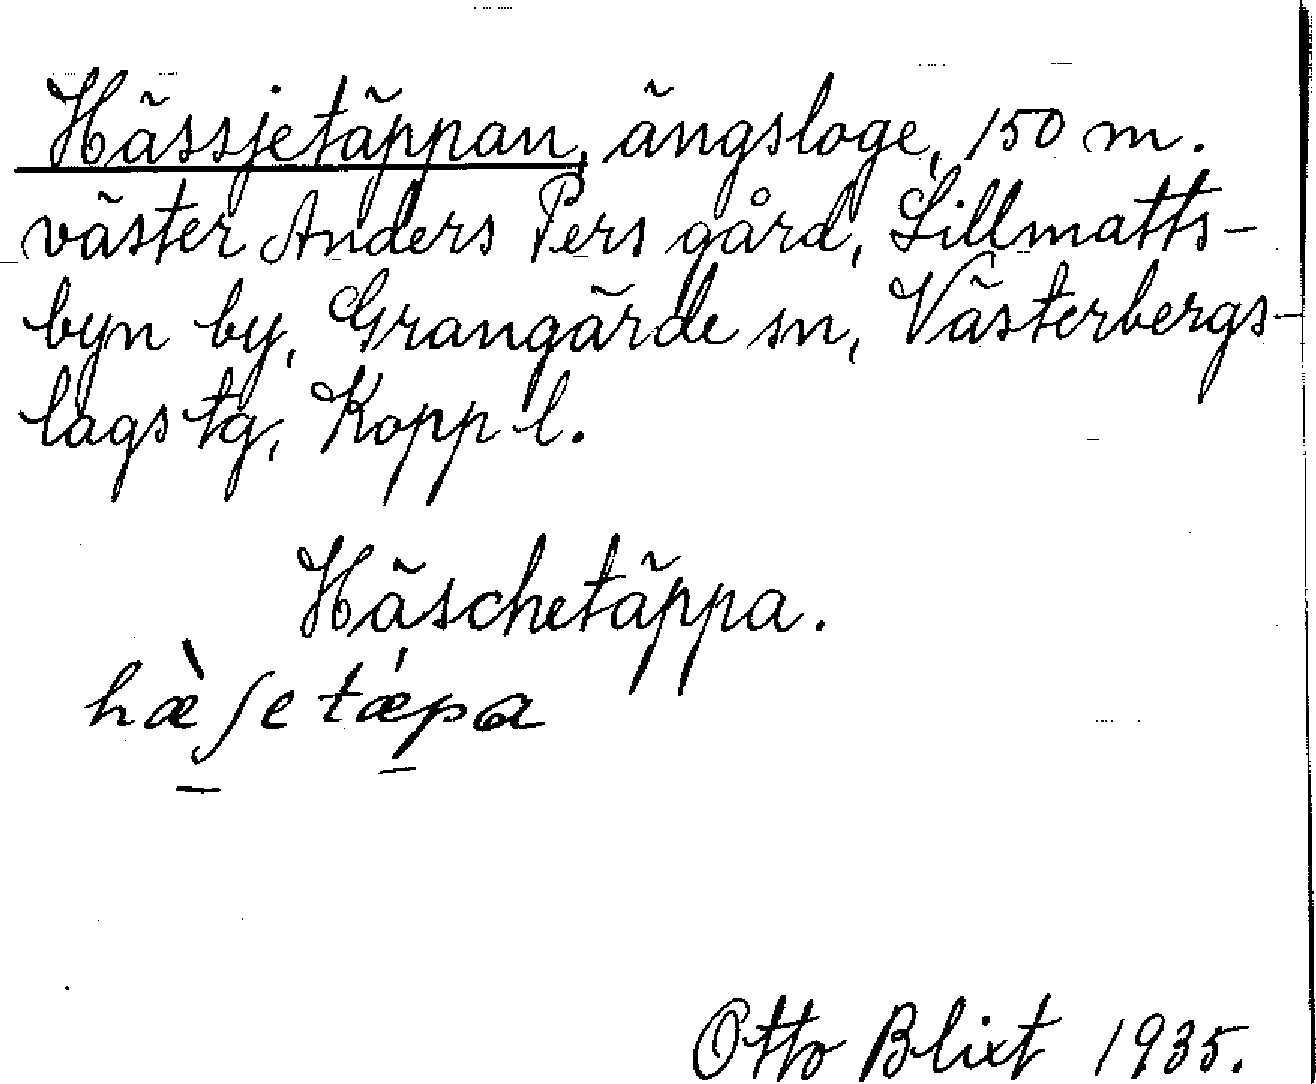 Hässjetäppan, ängsloge, 150 m.
väster Anders Pers gård, Lillmatts-
byn by, Grangärde sn, Västerbergs-
lags tg, Kopp l.
Häschetäppa.
hæ̀ʃetǽpa
Otto Blixt 1935.